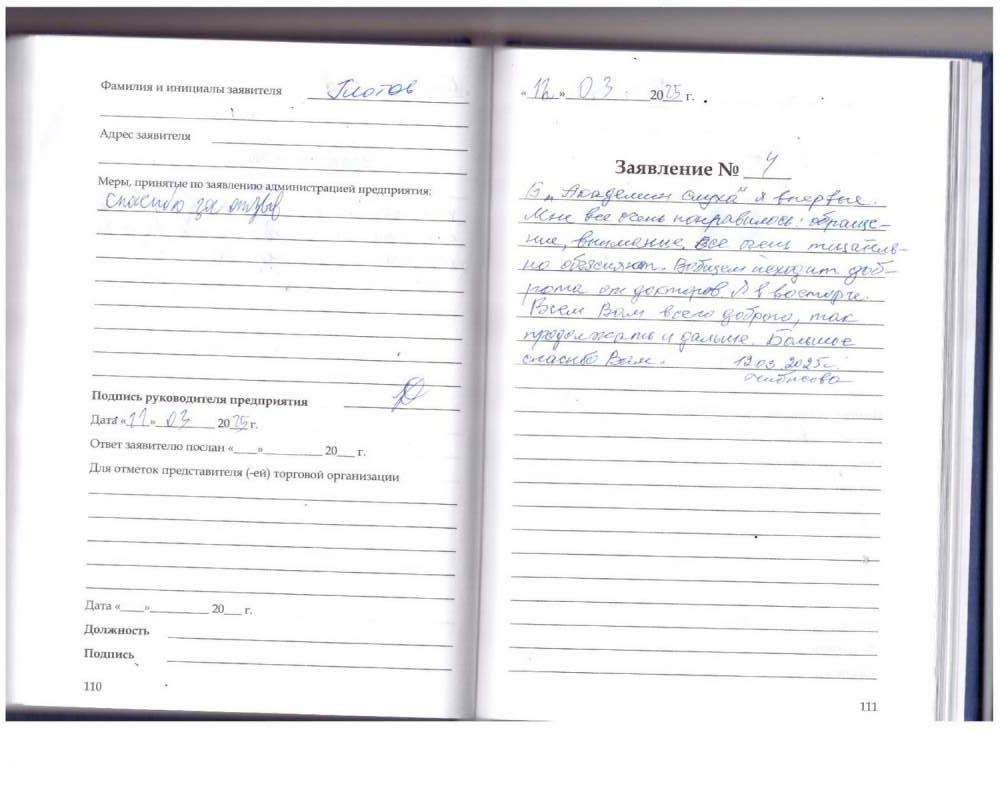 Фамилия и инициалы заявителя Глотов
Адрес заявителя
Меры, принятые по заявлению администрацией предприятия:
Спасибо за отзыв
Подпись руководителя предприятия
Дата «12» 03 2025 г.
Ответ заявителю послан «____»__________ 20___ г.
Для отметок представителя (-ей) торговой организации
Дата «____»__________ 20___ г.
Должность
Подпись
110
«12» 03 2025 г.
Заявление № 4
В „Академии слуха" я впервые.
Мне все очень понравилось: обраще-
ние, внимание. Все очень тщатель-
но обезсняют. Вобщем исходит доб-
рота от докторов. Я в восторге.
Всем Вам всего доброго, так
продолжать и дальше. Большое
спасибо Вам. 12.03.2025 г.
111